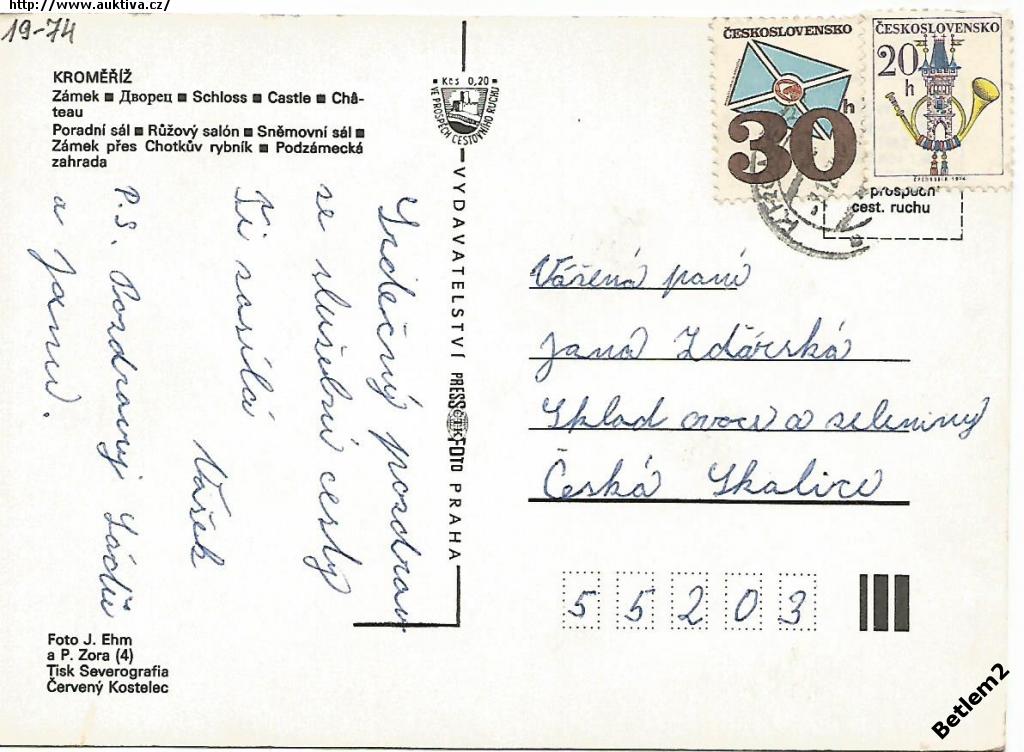 http://www.auktiva.cz/
19-74
KROMĚŘÍŽ
Zámek ■ Дворец ■ Schloss ■ Castle ■ Châ-
teau
Poradní sál ■ Růžový salón ■ Sněmovní sál ■
Zámek přes Chotkův rybník ■ Podzámecká
zahrada
Kčs 0,20
VE PROSPĚCH CESTOVNÍHO RUCHU
VYDAVATELSTVÍ PRESSFOTO PRAHA
ČESKOSLOVENSKO
30 h
ČESKOSLOVENSKO
20 h
prospěch
cest. ruchu
Srdečný pozdrav
se služební cesty
Ti zasílá
Vašek
P.S. Pozdravuj Láďu
a Janu.
Vážená paní
Jana Zdářská
Sklad ovoce a zeleniny
Česká Skalice
55203
Foto J. Ehm
a P. Zora (4)
Tisk Severografia
Červený Kostelec
Betlem2